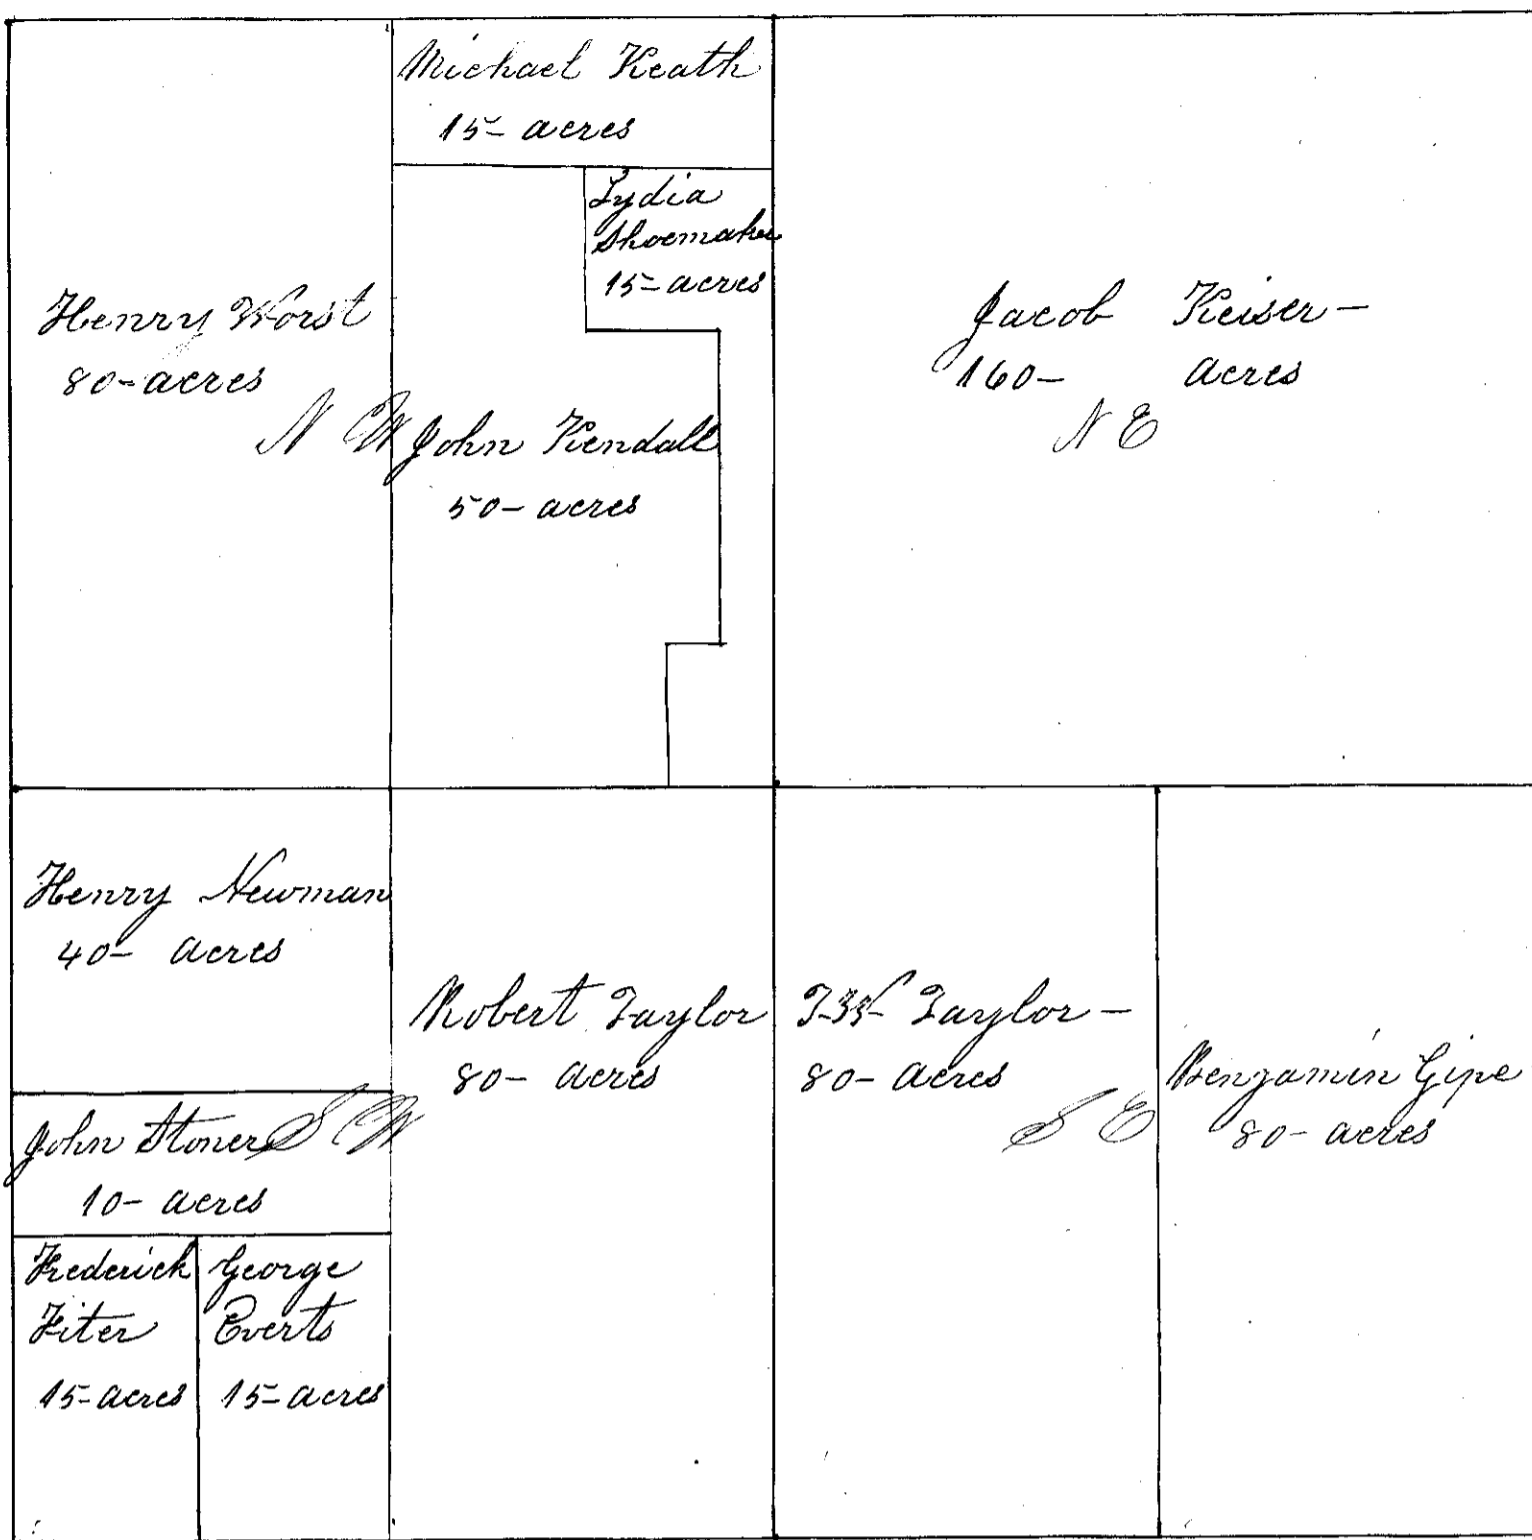 Michael Keath
15- acres
Lydia
Shoemaker
15- acres
Henry Worst
80- acres
N W
John Kendall
50- acres
Jacob Keiser-
160- acres
N E
Henry Newman
40- acres
John Stoner
10- acres
S W
Frederick
Fiter
15- acres
George
Everts
15- acres
Robert Taylor
80- acres
Taylor-
80- acres
S E
Benjamin Gipe
80- acres